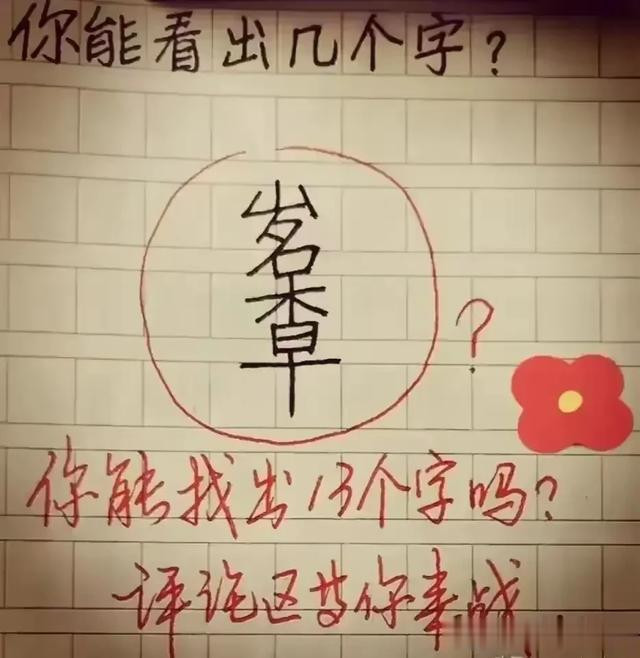 你能看出几个字?
?
你能找出13个字吗?
评论区等你来战